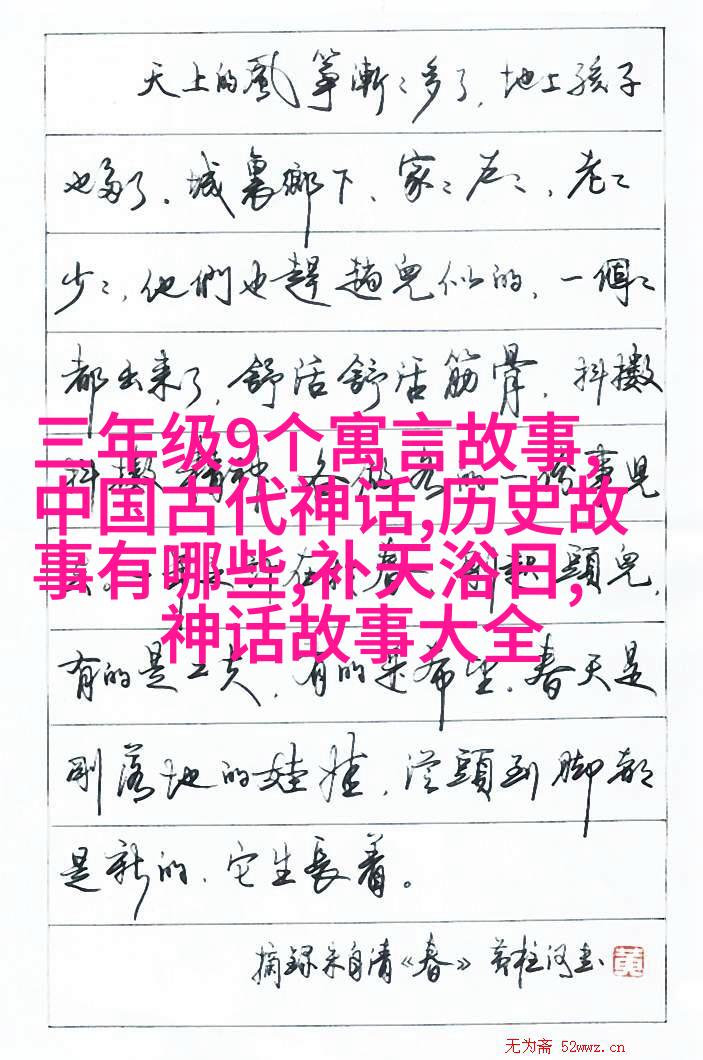 天上的風箏漸〻多了，地上孩子
也多了。城裏鄉下，家〻戶〻，老〻
少〻，他們也趕趟兒似的，一個〻
都出来了，舒活舒活筋骨，抖擻
三年级9个寓言故事,
中国古代神话,历史故
事有哪些,补天浴日,
神话故事大全
有的是工夫，有的是希望。春天是
剛落地的娃娃，從頭到脚都
是新的，它生長着。
摘録朱自清《春》 黄
无为斋 52wwz.cn